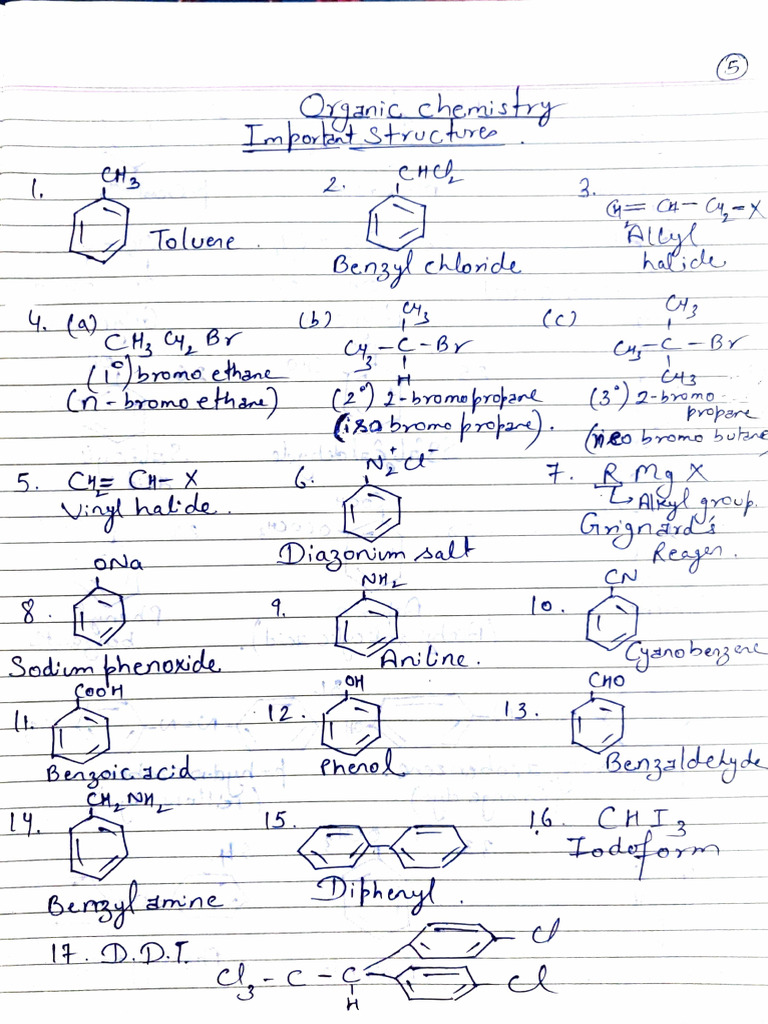 5
Organic chemistry
Important Structures.
1. CH3 Toluene.
2. CHCl2 Benzyl chloride
3. CH2 = CH - CH2 - X Allyl halide
4. (a) CH3 CH2 Br
(1°) bromo ethane
(n - bromo ethane)
(b) CH3
CH3 - C - Br
H
(2°) 2-bromopropane
(iso bromo propane).
(c) CH3
CH3 - C - Br
CH3
(3°) 2-bromo
propane
(neo bromo butane
5. CH2 = CH - X
Vinyl halide.
6. N2+ Cl-
Diazonium salt
7. R Mg X
Alkyl group.
Grignard's
Reagen.
8. ONa
Sodium phenoxide
9. NH2
Aniline.
10. CN
Cyanobenzene
11. COOH
Benzoic acid
12. OH
Phenol
13. CHO
Benzaldehyde
14. CH2NH2
Benzyl amine
15.
Diphenyl.
16. CHI3
Iodoform
17. D.D.T.
Cl
Cl3 - C - C
Cl
H